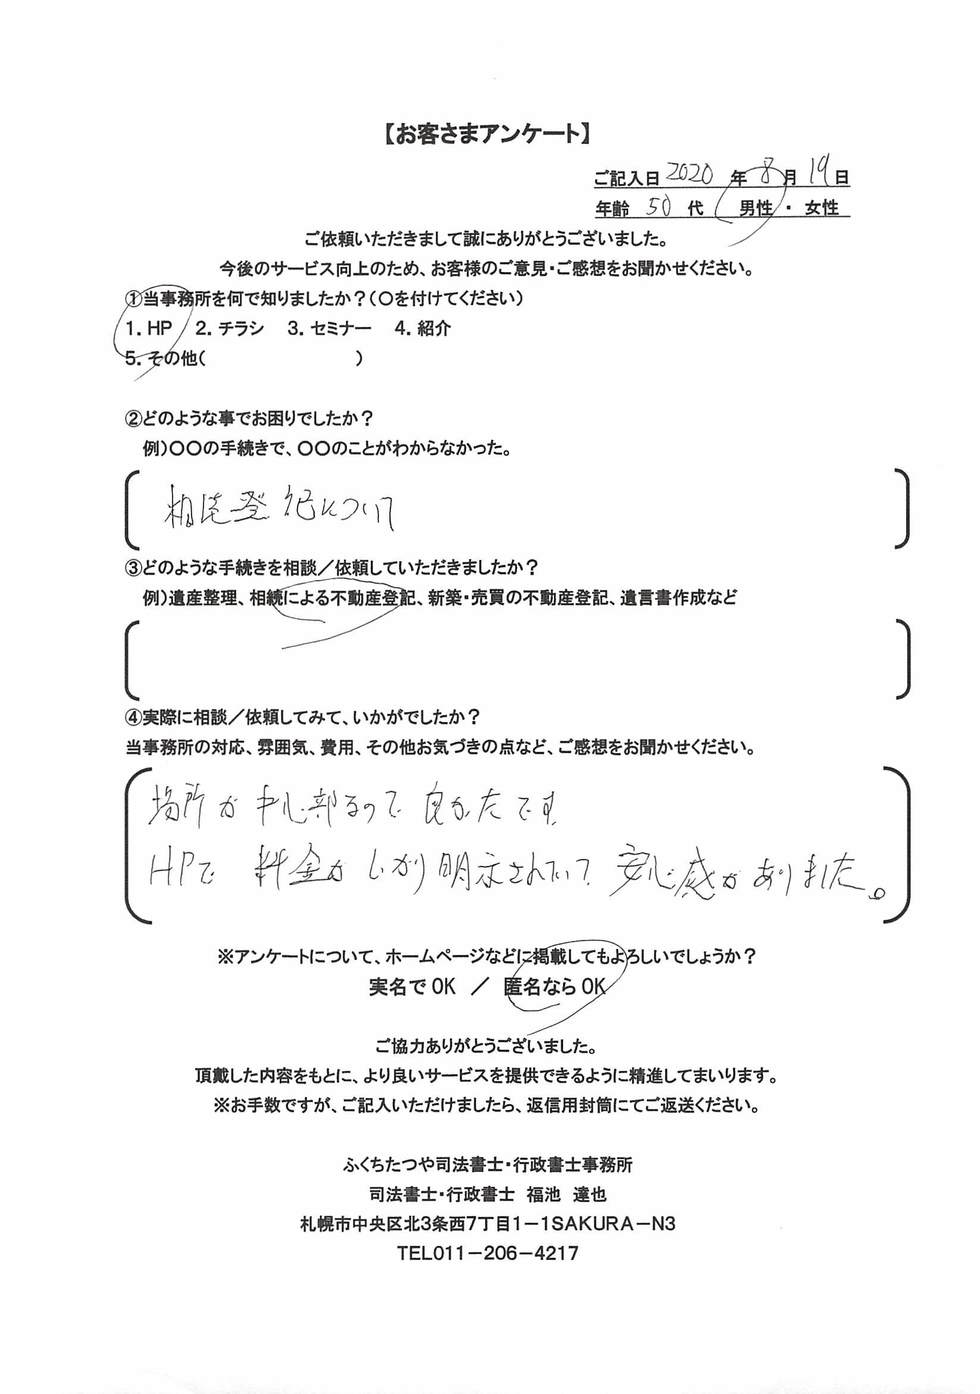 【お客さまアンケート】
ご記入日 2020 年 8 月 19 日
年齢 50 代 男性 ・ 女性
ご依頼いただきまして誠にありがとうございました。
今後のサービス向上のため、お客様のご意見・ご感想をお聞かせください。
①当事務所を何で知りましたか？（〇を付けてください）
1. HP 2. チラシ 3. セミナー 4. 紹介
5. その他( )
②どのような事でお困りでしたか？
例）〇〇の手続きで、〇〇のことがわからなかった。
相続登記について
③どのような手続きを相談／依頼していただきましたか？
例）遺産整理、相続による不動産登記、新築・売買の不動産登記、遺言書作成など
④実際に相談／依頼してみて、いかがでしたか？
当事務所の対応、雰囲気、費用、その他お気づきの点など、ご感想をお聞かせください。
場所が中心部なので良かったです
HPで料金がしっかり明示されていて安心感がありました。
※アンケートについて、ホームページなどに掲載してもよろしいでしょうか？
実名でOK ／ 匿名ならOK
ご協力ありがとうございました。
頂戴した内容をもとに、より良いサービスを提供できるように精進してまいります。
※お手数ですが、ご記入いただけましたら、返信用封筒にてご返送ください。
ふくちたつや司法書士・行政書士事務所
司法書士・行政書士 福池 達也
札幌市中央区北3条西7丁目1－1SAKURA－N3
TEL011－206－4217